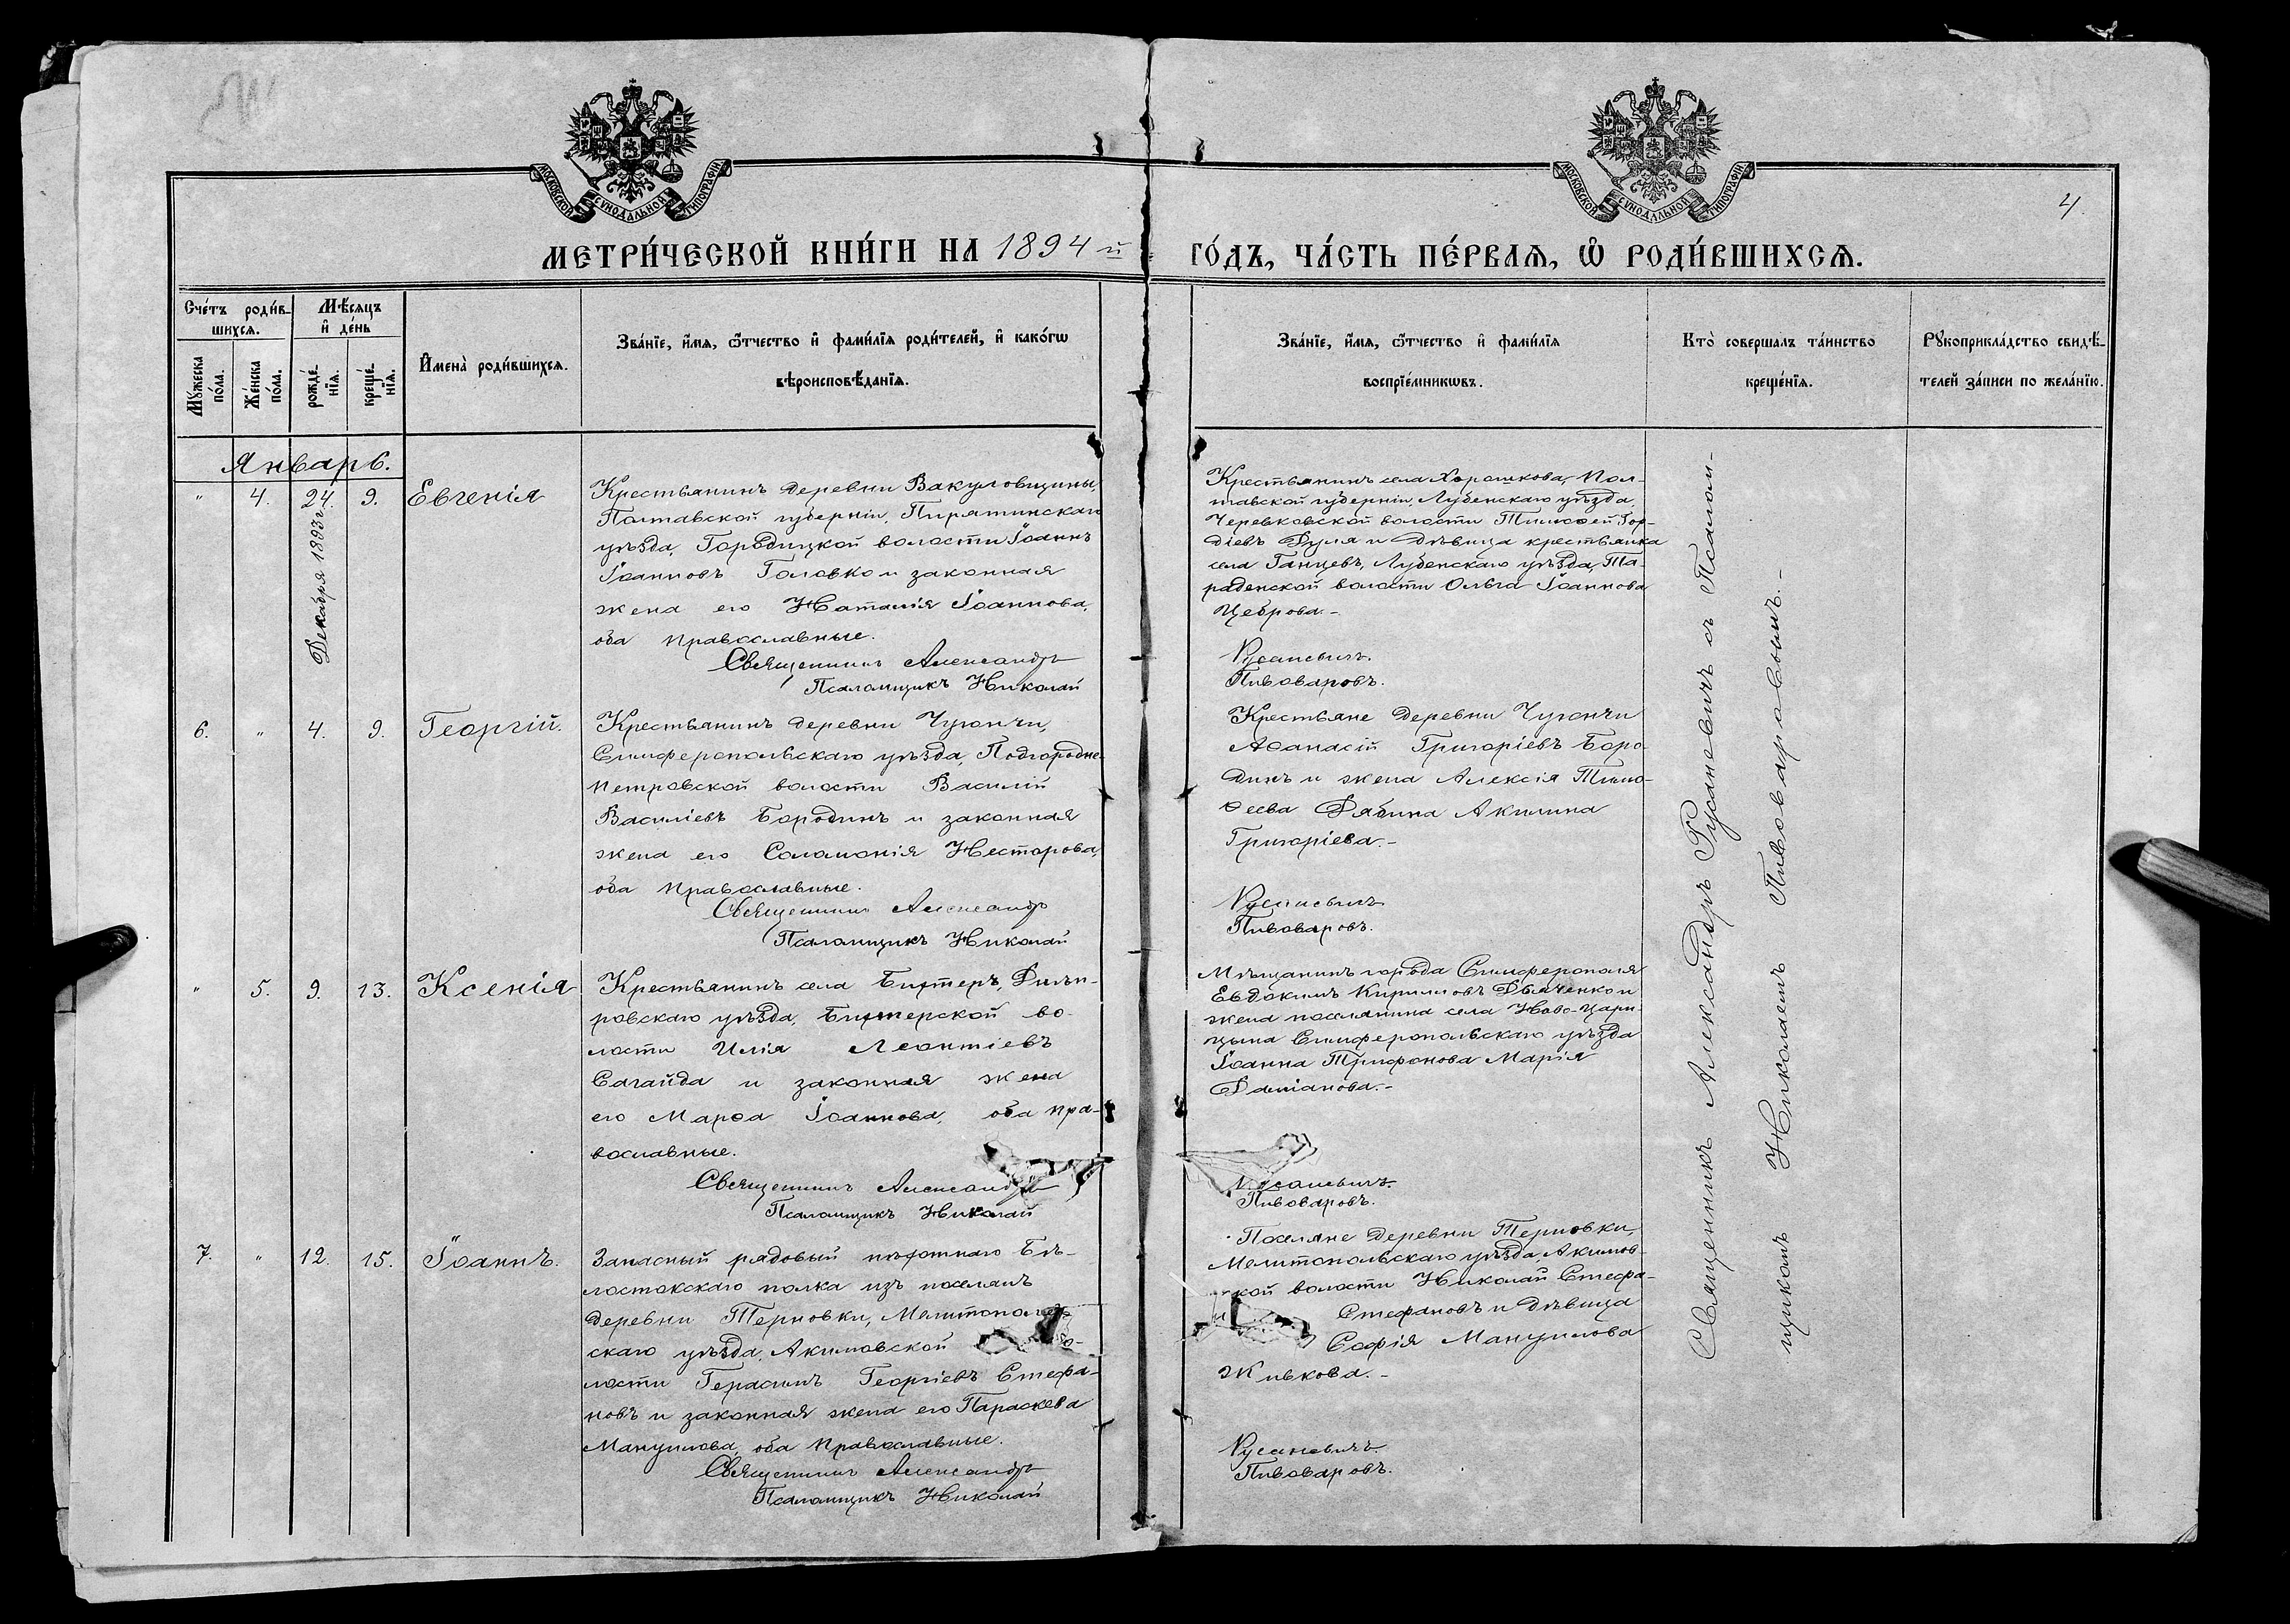 МОСКОВСКОЙ СѴНОДАЛЬНОЙ ТИПОГРАФІИ
МОСКОВСКОЙ СѴНОДАЛЬНОЙ ТИПОГРАФІИ
4
МЕТРИ́ЧЕСКОЙ КНИ́ГИ НА 1894 й ГО́ДЪ, ЧА́СТЬ ПЕ́РВАѦ, Ѡ҆ РОДИ́ВШИХСѦ.
Сче́тъ роди́в-
шихсѧ.
Мѣ́сѧцъ
и҆ де́нь
Мꙋ́жеска
по́ла.
Же́нска
по́ла.
рожде́-
нїѧ.
креще́-
нїѧ.
И҆мена̀ роди́вшихсѧ.
Зва́нїе, и҆́мѧ, ѻ҆́тчество и҆ фами́лїѧ роди́телей, и҆ како́гѡ
вѣроисповѣ́данїѧ.
Зва́нїе, и҆́мѧ, ѻ҆́тчество и҆ фами́лїѧ
воспрїе́мникѡвъ.
Кто̀ соверша́лъ та́инство
креще́нїѧ.
Рꙋкоприкла́дство свидѣ́-
телей за́писи по жела́нїю.
Январь.
" 4. 24. 9. Евгенія
Декабря 1893 г
Крестьянинъ деревни Вакуловщины,
Полтавской губерніи, Пирятинскаго
уѣзда, Городицкой волости Іоаннъ
Іоанновъ Головко и законная
жена его Наталія Іоаннова,
оба православные.
Священникъ Александръ
Псаломщикъ Николай
Крестьянинъ села Хорошкова, Пол-
тавской губерніи, Лубенскаго уѣзда,
Черевковской волости Тимоѳей Гор-
діевъ Дуля и дѣвица крестьянка
села Ганцевъ, Лубенскаго уѣзда, Та-
раденской волости Ольга Іоаннова
Цеброва.-
Русаневичъ.
Пивоваровъ.
6. " 4. 9. Георгій.
Крестьянинъ деревни Чугончи,
Симферопольскаго уѣзда, Подгородне-
Петровской волости Василій
Василіевъ Бородинъ и законная
жена его Соломонія Несторова,
оба православные.
Священникъ Александръ
Псаломщикъ Николай
Крестьяне деревни Чугончи
Аѳанасій Григоріевъ Боро-
динъ и жена Алексія Тимо-
ѳеева Рябина Акилина
Григоріева.-
Русаневичъ
Пивоваровъ.
" 5. 9. 13. Ксенія
Крестьянинъ села Бютеръ, Днѣп-
ровскаго уѣзда, Бютерской во-
лости Илія Леонтіевъ
Сагайда и законная жена
его Марѳа Іоаннова, оба пра-
вославные.
Священникъ Александръ
Псаломщикъ Николай
Мѣщанинъ города Симферополя
Евдокимъ Кирилловъ Дьяченко и
жена поселянина села Ново-Цари-
цына Симферопольскаго уѣзда
Іоанна Трифонова Марія
Даміанова.-
Русаневичъ.
Пивоваровъ.
7. " 12. 15. Іоаннъ.
Запасный рядовый пѣхотнаго Бѣ-
лостокскаго полка изъ поселянъ
деревни Терновки, Мелитополь-
скаго уѣзда, Акимовской во-
лости Герасимъ Георгіевъ Стефа-
новъ и законная жена его Параскева
Мануилова, оба православные.
Священникъ Александръ
Псаломщикъ Николай
Поселяне деревни Терновки,
Мелитопольскаго уѣзда, Акимов-
ской волости Николай Стефа-
Стефановъ и дѣвица
Софія Мануилова
Живкова.-
Русаневичъ.
Пивоваровъ.
Священникъ Александръ Русаневичъ съ Псалом-
щикомъ Николаемъ Пивоваровымъ.-